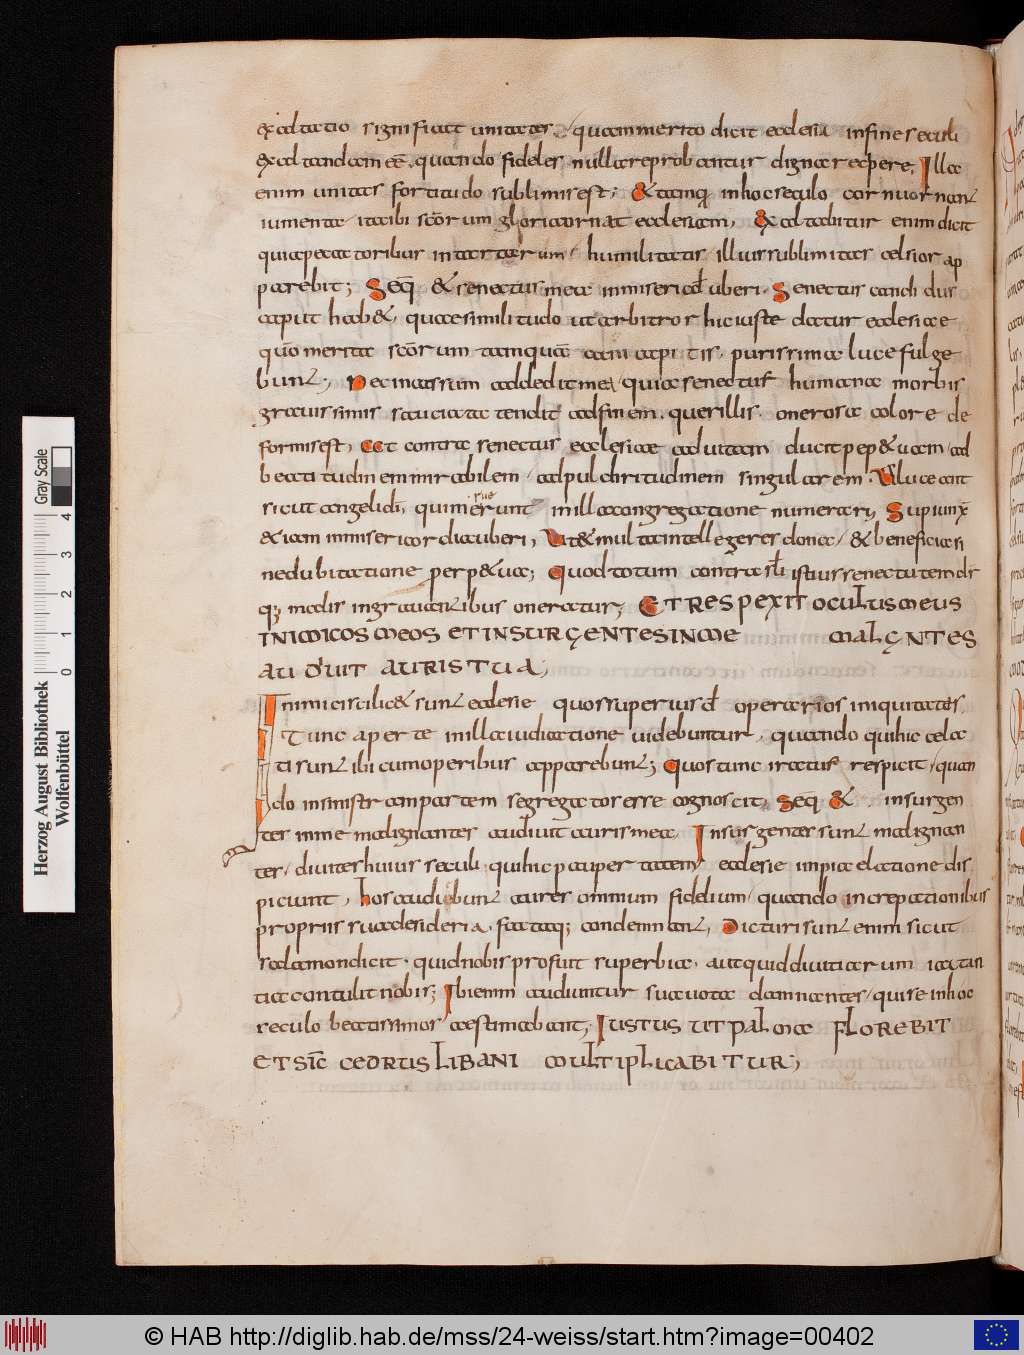 exaltatio significat unitates, quam merito dicit ecclesia in fine seculi
exaltandam eē. quando fideles nulla reprobantur digna recipere. Illa
enim unitas fortitudo sublimis est; & tamq in hoc seculo cornu ornant
iumenta ita ibi scōrum gloria ornat ecclesiam, Exaltabitur enim dicit
quia peccatoribus in tartarum, humilitatis illius sublimitas celsior ap
parebit; Seq̄ & senectus mea in misericod uberi. Senectus candidus
caput hab&, quae similitudo ut arbitror hic iuste datur ecclesiae
quō merita scōrum tamquā cani capitis. purissima luce fulge
bunt; Nec in cassum addedit mea, quia senectus humana morbis
gravissimis sauciata tendit ad finem. querillis. onerosa colore de
formis est, at contra senectus ecclesiae ad vitam ducit perp&uam, ad
beatitudinem mirabilem, ad pulchritudinem singularem. Ut luceant
sicut angeli dī, qui meruerunt in illa congregatione numerari, Supiunx
& iam in misericordia uberi, Ut & multa intellegeres dona, & beneficia si
ne dubitatione perp&ua; Quod totum contra sli istius senectutem dr
q; malis ingravantibus oneratur; ET RESPEXIT OCULUS MEUS
INIMICOS MEOS ET INSURGENTES IN ME MALGNTES
AUDIUIT AURIS TUA,
Inimici scilic& sunt ecclesie quos superius d operarios iniquitates.
Tunc aperte in illa iudicatione videbuntur, quando qui hic cela
ti sunt ibi cum operibus apparebunt; Quos tunc iratus respicit, quan
do in sinistram partem segregatos esse cognoscit, Seq & insurgen
tes in me malignantes audivit auris mea, Insurgentes sunt malignan
tes, divites huius seculi. qui hic paupertatem ecclesie impia elatione dis
piciunt, hos audiebunt aures omnium fidelium, quando increpationibus
propriis sua desideria, facta q; condemnant, Dicturi sunt enim sicut
salamon dicit. quid nobis profuit superbia. aut quid divitiarum iactan
tia contulit nobis; Ibi enim audiuntur sua vota damnantes, qui se in hoc
seculo beatissimos aestimabant, IUSTUS UT PALMA FLOREBIT
ET SIC CEDRUS LIBANI MULTIPLICABITUR;
Herzog August Bibliothek
Wolfenbüttel
Gray Scale
0 1 2 3 4
© HAB http://diglib.hab.de/mss/24-weiss/start.htm?image=00402